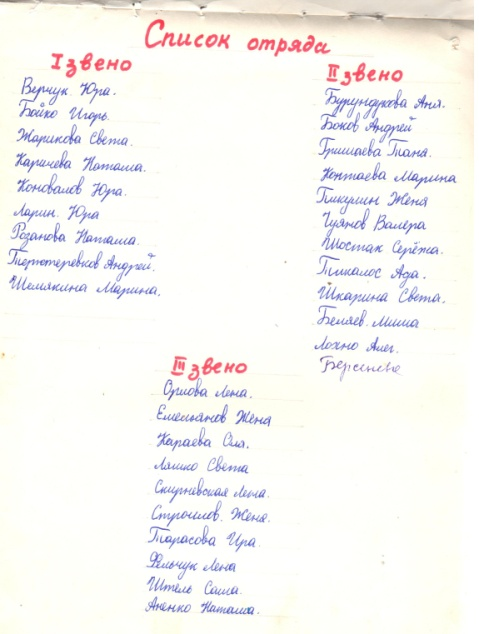 Список отряда
I звено
Верчук Юра.
Бойко Игорь.
Жарикова Света.
Каричева Наташа.
Коновалов Юра.
Ларин. Юра
Розанова Наташа.
Андрей.
Шемякина Марина.
II звено
Бурундукова Аня.
Боков Андрей
Гришаева Таня.
Контаева Марина
Пикулин Женя
Чуянов Валера
Шостак Серёжа.
Пикалос Ада.
Шкарина Света.
Беляев. Миша
Лохно Алег.
III звено
Орлова Лена.
Емельянов Женя
Караева Оля.
Ляшко Света
Скирневская Лена.
Строилов. Женя.
Тарасова Ира.
Фельчук Лена
Штель Саша.
Аненко Наташа.